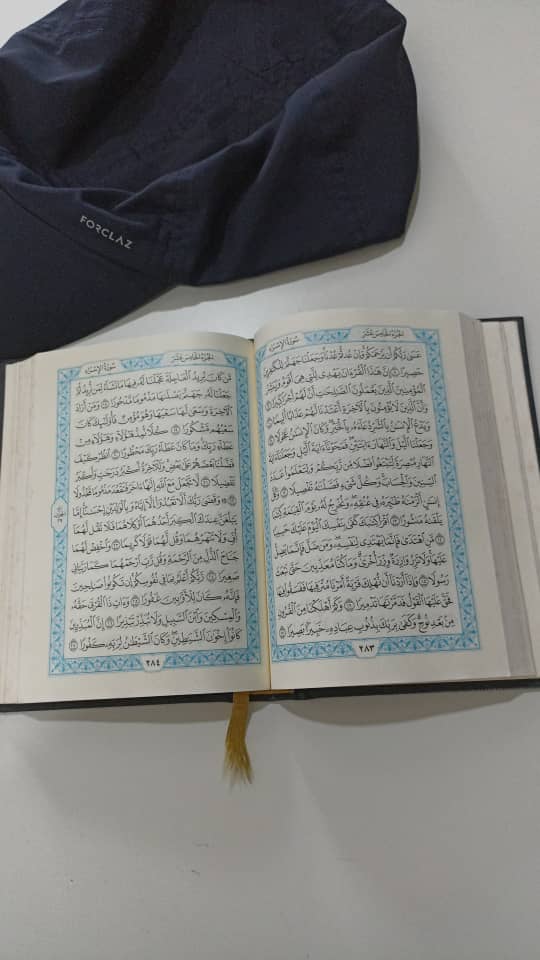 FORCLAZ
الجزء الخامس عشر
سورة الإسراء
عَسَىٰ رَبُّكُمْ أَن يَرْحَمَكُمْ وَإِنْ عُدتُّمْ عُدْنَا وَجَعَلْنَا جَهَنَّمَ لِلْكَٰفِرِينَ
حَصِيرًا ٨ إِنَّ هَٰذَا ٱلْقُرْءَانَ يَهْدِى لِلَّتِى هِىَ أَقْوَمُ وَيُبَشِّرُ
ٱلْمُؤْمِنِينَ ٱلَّذِينَ يَعْمَلُونَ ٱلصَّٰلِحَٰتِ أَنَّ لَهُمْ أَجْرًا كَبِيرًا ٩
وَأَنَّ ٱلَّذِينَ لَا يُؤْمِنُونَ بِٱلْءَاخِرَةِ أَعْتَدْنَا لَهُمْ عَذَابًا أَلِيمًا ١٠
وَيَدْعُ ٱلْإِنسَٰنُ بِٱلشَّرِّ دُعَآءَهُۥ بِٱلْخَيْرِ وَكَانَ ٱلْإِنسَٰنُ عَجُولًا ١١
وَجَعَلْنَا ٱلَّيْلَ وَٱلنَّهَارَ ءَايَتَيْنِ فَمَحَوْنَآ ءَايَةَ ٱلَّيْلِ وَجَعَلْنَآ ءَايَةَ
ٱلنَّهَارِ مُبْصِرَةً لِّتَبْتَغُوا۟ فَضْلًا مِّن رَّبِّكُمْ وَلِتَعْلَمُوا۟ عَدَدَ
ٱلسِّنِينَ وَٱلْحِسَابَ وَكُلَّ شَىْءٍ فَصَّلْنَٰهُ تَفْصِيلًا ١٢ وَكُلَّ
إِنسَٰنٍ أَلْزَمْنَٰهُ طَٰٓئِرَهُۥ فِى عُنُقِهِۦ وَنُخْرِجُ لَهُۥ يَوْمَ ٱلْقِيَٰمَةِ كِتَٰبًا
يَلْقَىٰهُ مَنشُورًا ١٣ ٱقْرَأْ كِتَٰبَكَ كَفَىٰ بِنَفْسِكَ ٱلْيَوْمَ عَلَيْكَ حَسِيبًا
١٤ مَّنِ ٱهْتَدَىٰ فَإِنَّمَا يَهْتَدِى لِنَفْسِهِۦ وَمَن ضَلَّ فَإِنَّمَا يَضِلُّ
عَلَيْهَا وَلَا تَزِرُ وَازِرَةٌ وِزْرَ أُخْرَىٰ وَمَا كُنَّا مُعَذِّبِينَ حَتَّىٰ نَبْعَثَ
رَسُولًا ١٥ وَإِذَآ أَرَدْنَآ أَن نُّهْلِكَ قَرْيَةً أَمَرْنَا مُتْرَفِيهَا فَفَسَقُوا۟ فِيهَا
فَحَقَّ عَلَيْهَا ٱلْقَوْلُ فَدَمَّرْنَٰهَا تَدْمِيرًا ١٦ وَكَمْ أَهْلَكْنَا مِنَ ٱلْقُرُونِ
مِنۢ بَعْدِ نُوحٍ وَكَفَىٰ بِرَبِّكَ بِذُنُوبِ عِبَادِهِۦ خَبِيرًۢا بَصِيرًا ١٧
٢٨٣
الجزء الخامس عشر
سورة الإسراء
مَّن كَانَ يُرِيدُ ٱلْعَاجِلَةَ عَجَّلْنَا لَهُۥ فِيهَا مَا نَشَآءُ لِمَن نُّرِيدُ ثُمَّ
جَعَلْنَا لَهُۥ جَهَنَّمَ يَصْلَىٰهَا مَذْمُومًا مَّدْحُورًا ١٨ وَمَنْ أَرَادَ
ٱلْءَاخِرَةَ وَسَعَىٰ لَهَا سَعْيَهَا وَهُوَ مُؤْمِنٌ فَأُو۟لَٰٓئِكَ كَانَ
سَعْيُهُم مَّشْكُورًا ١٩ كُلًّا نُّمِدُّ هَٰٓؤُلَآءِ وَهَٰٓؤُلَآءِ مِنْ
عَطَآءِ رَبِّكَ وَمَا كَانَ عَطَآءُ رَبِّكَ مَحْظُورًا ٢٠ ٱنظُرْ كَيْفَ
فَضَّلْنَا بَعْضَهُمْ عَلَىٰ بَعْضٍ وَلَلْءَاخِرَةُ أَكْبَرُ دَرَجَٰتٍ وَأَكْبَرُ
تَفْضِيلًا ٢١ لَّا تَجْعَلْ مَعَ ٱللَّهِ إِلَٰهًا ءَاخَرَ فَتَقْعُدَ مَذْمُومًا مَّخْذُولًا
٢٢ ۞ وَقَضَىٰ رَبُّكَ أَلَّا تَعْبُدُوٓا۟ إِلَّآ إِيَّاهُ وَبِٱلْوَٰلِدَيْنِ إِحْسَٰنًا إِمَّا
يَبْلُغَنَّ عِندَكَ ٱلْكِبَرَ أَحَدُهُمَآ أَوْ كِلَاهُمَا فَلَا تَقُل لَّهُمَآ
أُفٍّ وَلَا تَنْهَرْهُمَا وَقُل لَّهُمَا قَوْلًا كَرِيمًا ٢٣ وَٱخْفِضْ لَهُمَا
جَنَاحَ ٱلذُّلِّ مِنَ ٱلرَّحْمَةِ وَقُل رَّبِّ ٱرْحَمْهُمَا كَمَا رَبَّيَانِى
صَغِيرًا ٢٤ رَّبُّكُمْ أَعْلَمُ بِمَا فِى نُفُوسِكُمْ إِن تَكُونُوا۟ صَٰلِحِينَ
فَإِنَّهُۥ كَانَ لِلْأَوَّٰبِينَ غَفُورًا ٢٥ وَءَاتِ ذَا ٱلْقُرْبَىٰ حَقَّهُۥ
وَٱلْمِسْكِينَ وَٱبْنَ ٱلسَّبِيلِ وَلَا تُبَذِّرْ تَبْذِيرًا ٢٦ إِنَّ ٱلْمُبَذِّرِينَ
كَانُوٓا۟ إِخْوَٰنَ ٱلشَّيَٰطِينِ وَكَانَ ٱلشَّيْطَٰنُ لِرَبِّهِۦ كَفُورًا ٢٧
٢٨٤